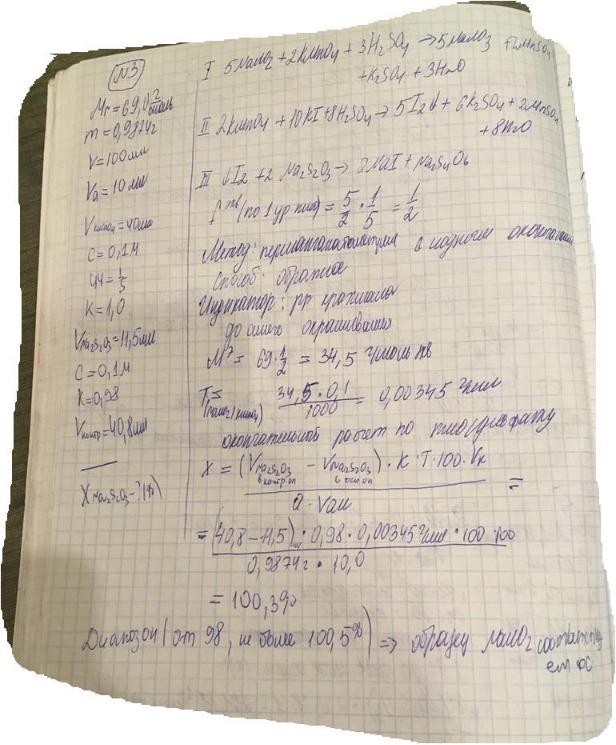 №3
Mr = 69,0 г/моль
m = 0,9874г
V = 100мл
Va = 10 мл
V kmno4 = 40мл
C = 0,1М
УЧ = 1/5
K = 1,0
V Na2S2O3 = 11,5мл
C = 0,1М
K = 0,98
V контр = 40,8мл
X Na2S2O3 - ? (%)
I 5NaNO2 + 2KMnO4 + 3H2SO4 → 5NaNO3 + 2MnSO4
+ K2SO4 + 3H2O
II 2KMnO4 + 10KI + 8H2SO4 → 5I2↓ + 6K2SO4 + 2MnSO4
+ 8H2O
III I2 + 2Na2S2O3 → 2NaI + Na2S4O6
(по 1 ур-нию) = 5/2 · 1/5 = 1/2
Метод: перманганатометрия с йодным окончанием
Способ: обратное
Индикатор: рр крахмала
до синего окрашивания
Mэ = 69 · 1/2 = 34,5 г/моль экв
T = 34,5 · 0,1 / 1000 = 0,00345 г/мл
окончательной расчет по тиосульфату
X = (V Na2S2O3 в контр оп − V Na2S2O3 в осн оп) · K · T · 100 · Vк / a · Vал =
= (40,8 − 11,5) · 0,98 · 0,00345 г/мл · 100 · 100 / 0,9874 г · 10,0
= 100,3%
Диапазон (от 98, не более 100,5%) => образец NaNO2 соответству
ет ФС